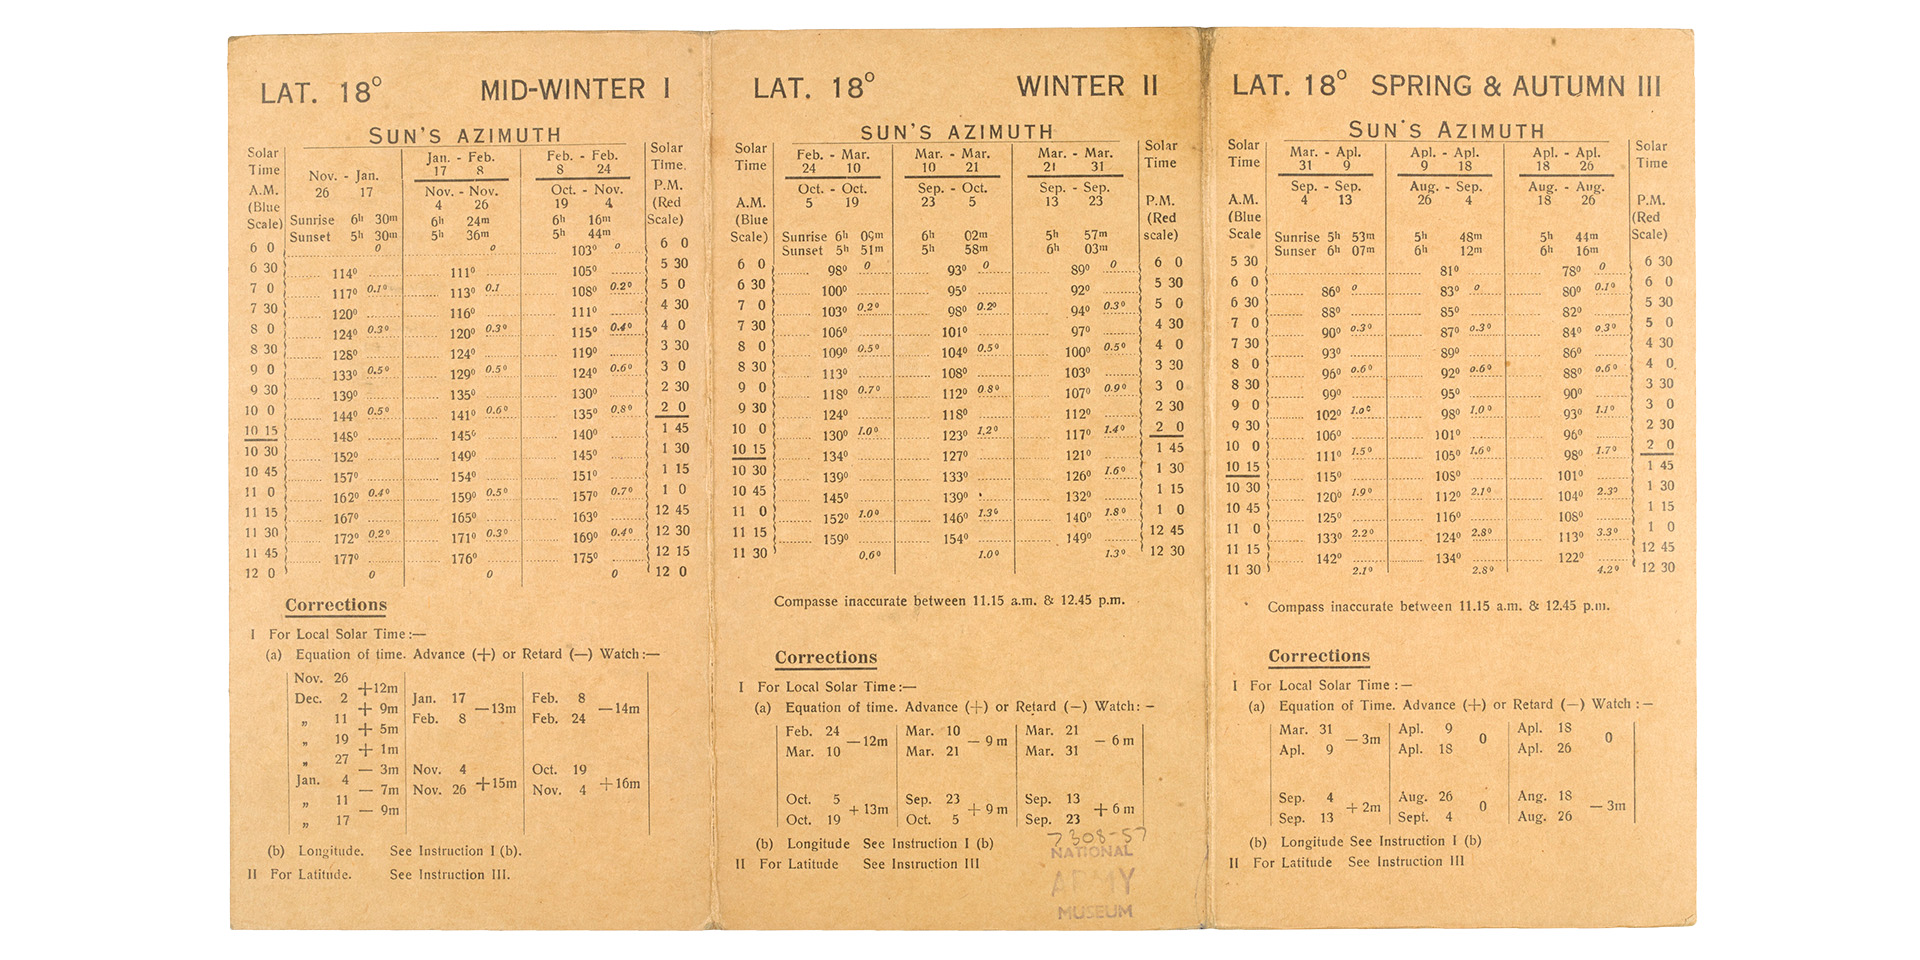 LAT. 18° MID-WINTER I
SUN'S AZIMUTH
Solar Time A.M. (Blue Scale)
Nov. - Jan. 26 17
Jan. - Feb. 17 8
Nov. - Nov. 4 26
Feb. - Feb. 8 24
Oct. - Nov. 19 4
Solar Time. P.M. (Red Scale)
Sunrise 6h 30m 6h 24m 6h 16m
Sunset 5h 30m 5h 36m 5h 44m
6 0 0 0 103° 0 6 0
6 30 114° 111° 105° 5 30
7 0 117° 0.1° 113° 0.1 108° 0.2° 5 0
7 30 120° 116° 111° 4 30
8 0 124° 0.3° 120° 0.3° 115° 0.4° 4 0
8 30 128° 124° 119° 3 30
9 0 133° 0.5° 129° 0.5° 124° 0.6° 3 0
9 30 139° 135° 130° 2 30
10 0 144° 0.5° 141° 0.6° 135° 0.8° 2 0
10 15 148° 145° 140° 1 45
10 30 152° 149° 145° 1 30
10 45 157° 154° 151° 1 15
11 0 162° 0.4° 159° 0.5° 157° 0.7° 1 0
11 15 167° 165° 163° 12 45
11 30 172° 0.2° 171° 0.3° 169° 0.4° 12 30
11 45 177° 176° 175° 12 15
12 0 0 0 0 12 0
Corrections
I For Local Solar Time :—
(a) Equation of time. Advance (+) or Retard (—) Watch :—
Nov. 26
+12m
Dec. 2
+ 9m
„ 11
+ 5m
„ 19
+ 1m
„ 27
— 3m
Jan. 4
— 7m
„ 11
— 9m
„ 17
Jan. 17
—13m
Feb. 8
Nov. 4
+15m
Nov. 26
Feb. 8
—14m
Feb. 24
Oct. 19
+16m
Nov. 4
(b) Longitude. See Instruction I (b).
II For Latitude. See Instruction III.
LAT. 18° WINTER II
SUN'S AZIMUTH
Solar Time A.M. (Blue Scale)
Feb. - Mar. 24 10
Oct. - Oct. 5 19
Mar. - Mar. 10 21
Sep. - Oct. 23 5
Mar. - Mar. 21 31
Sep. - Sep. 13 23
Solar Time P.M. (Red scale)
Sunrise 6h 09m 6h 02m 5h 57m
Sunset 5h 51m 5h 58m 6h 03m
6 0 98° 0 93° 0 89° 0 6 0
6 30 100° 95° 92° 5 30
7 0 103° 0.2° 98° 0.2° 94° 0.3° 5 0
7 30 106° 101° 97° 4 30
8 0 109° 0.5° 104° 0.5° 100° 0.5° 4 0
8 30 113° 108° 103° 3 30
9 0 118° 0.7° 112° 0.8° 107° 0.9° 3 0
9 30 124° 118° 112° 2 30
10 0 130° 1.0° 123° 1.2° 117° 1.4° 2 0
10 15 134° 127° 121° 1 45
10 30 139° 133° 126° 1.6° 1 30
10 45 145° 139° 132° 1 15
11 0 152° 1.0° 146° 1.3° 140° 1.8° 1 0
11 15 159° 154° 149° 12 45
11 30 0.6° 1.0° 1.3° 12 30
Compasse inaccurate between 11.15 a.m. & 12.45 p.m.
Corrections
I For Local Solar Time :—
(a) Equation of time. Advance (+) or Retard (—) Watch : —
Feb. 24
—12m
Mar. 10
Oct. 5
+13m
Oct. 19
Mar. 10
— 9m
Mar. 21
Sep. 23
+ 9m
Oct. 5
Mar. 21
— 6m
Mar. 31
Sep. 13
+ 6m
Sep. 23
(b) Longitude See Instruction I (b)
II For Latitude See Instruction III
7308-57
NATIONAL
ARMY
MUSEUM
LAT. 18° SPRING & AUTUMN III
SUN'S AZIMUTH
Solar Time A.M. (Blue Scale
Mar. - Apl. 31 9
Sep. - Sep. 4 13
Apl. - Apl. 9 18
Aug. - Sep. 26 4
Apl. - Apl. 18 26
Aug. - Aug. 18 26
Solar Time P.M. (Red Scale)
Sunrise 5h 53m 5h 48m 5h 44m
Sunser 6h 07m 6h 12m 6h 16m
5 30 81° 78° 0 6 30
6 0 86° 0 83° 0 80° 0.1° 6 0
6 30 88° 85° 82° 5 30
7 0 90° 0.3° 87° 0.3° 84° 0.3° 5 0
7 30 93° 89° 86° 4 30
8 0 96° 0.6° 92° 0.6° 88° 0.6° 4 0
8 30 99° 95° 90° 3 30
9 0 102° 1.0° 98° 1.0° 93° 1.1° 3 0
9 30 106° 101° 96° 2 30
10 0 111° 1.5° 105° 1.6° 98° 1.7° 2 0
10 15 115° 108° 101° 1 45
10 30 120° 1.9° 112° 2.1° 104° 2.3° 1 30
10 45 125° 116° 108° 1 15
11 0 133° 2.2° 124° 2.8° 113° 3.3° 1 0
11 15 142° 134° 122° 12 45
11 30 2.1° 2.8° 4.2° 12 30
Compass inaccurate between 11.15 a.m. & 12.45 p.m.
Corrections
I For Local Solar Time : —
(a) Equation of Time. Advance (+) or Retard (—) Watch : —
Mar. 31
— 3m
Apl. 9
Sep. 4
+ 2m
Sep. 13
Apl. 9
0
Apl. 18
Aug. 26
0
Sept. 4
Apl. 18
0
Apl. 26
Ang. 18
— 3m
Aug. 26
(b) Longitude See Instruction I (b)
II For Latitude See Instruction III